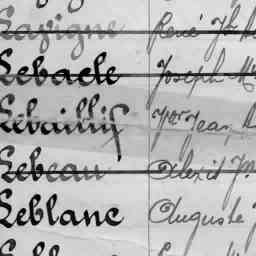 Lavigne René Jh
Lebacle Joseph
Lebaillif Jean
Lebeau Alexis
Leblanc Auguste